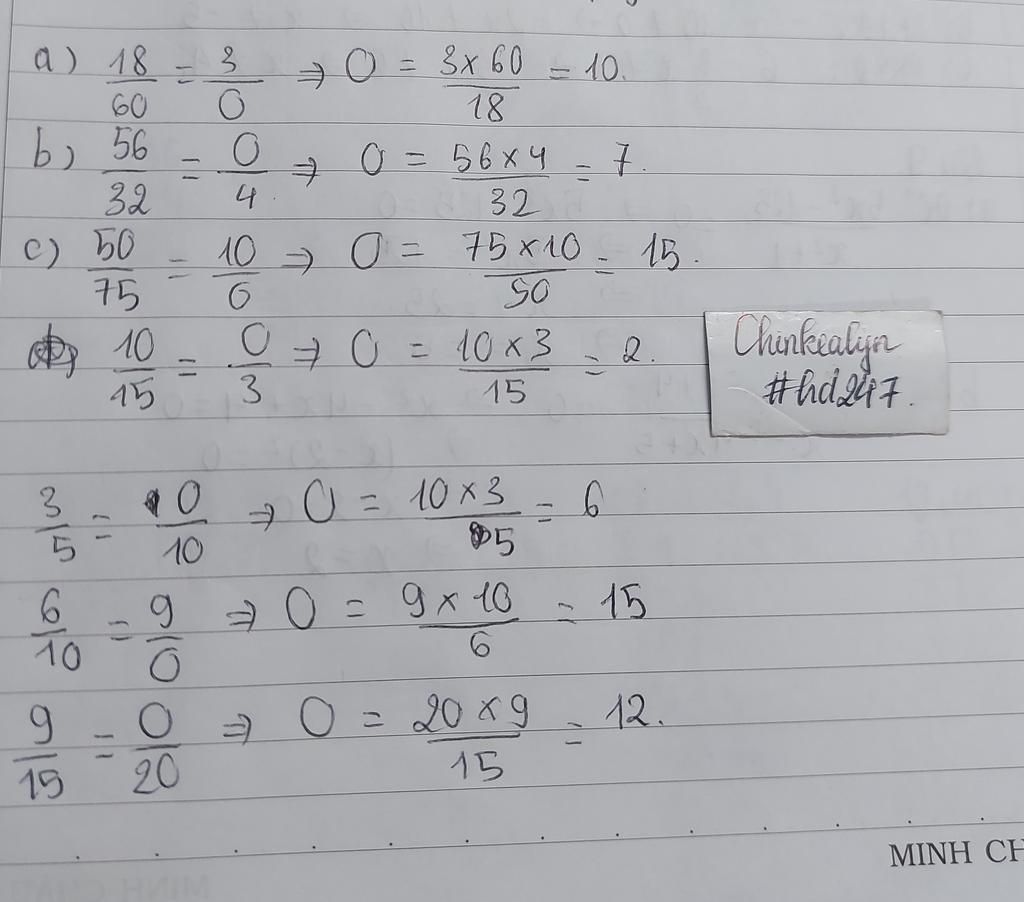 a) 18/60 = 3/0 ⇒ 0 = 3×60/18 = 10.
b) 56/32 = 0/4 ⇒ 0 = 56×4/32 = 7.
c) 50/75 = 10/0 ⇒ 0 = 75×10/50 = 15.
10/15 = 0/3 ⇒ 0 = 10×3/15 = 2.
Chinkealyn
#hd247.
3/5 = 0/10 ⇒ 0 = 10×3/5 = 6
6/10 = 9/0 ⇒ 0 = 9×10/6 = 15
9/15 = 0/20 ⇒ 0 = 20×9/15 = 12.
MINH CH